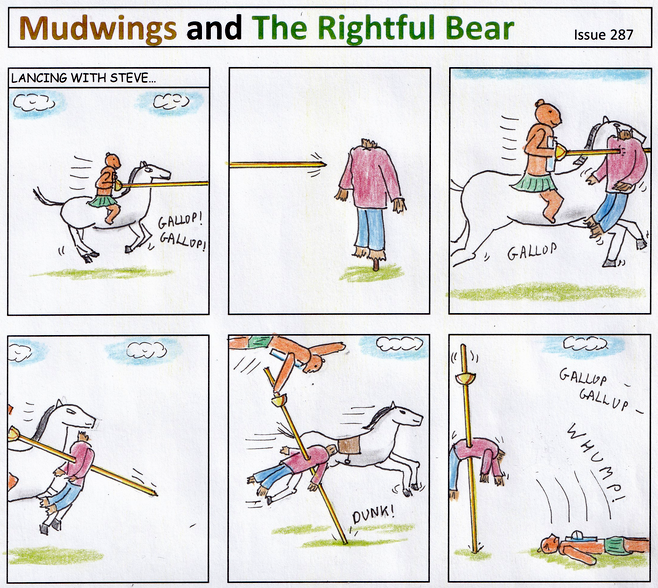 Mudwings and The Rightful Bear
Issue 287
LANCING WITH STEVE...
GALLOP!
GALLOP!
GALLOP
DUNK!
GALLOP -
GALLOP -
WHUMP!